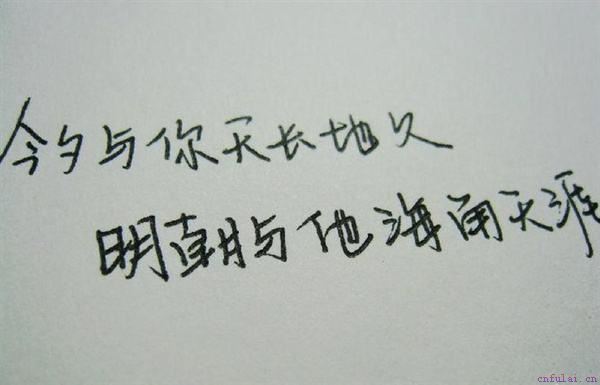 今夕与你天长地久
明朝与他海角天涯
cnfulai.cn